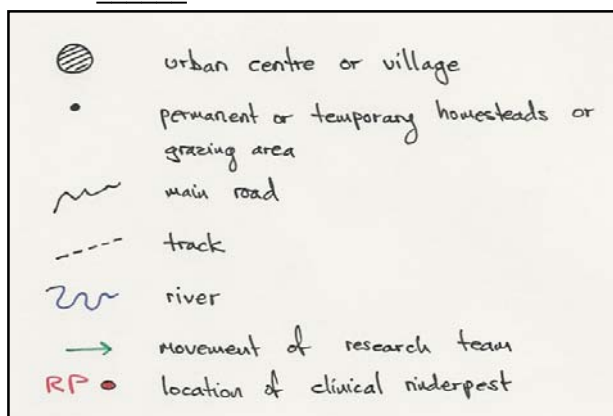 urban centre or village
permanent or temporary homesteads or
grazing area
main road
track
river
movement of research team
RP location of clinical rinderpest